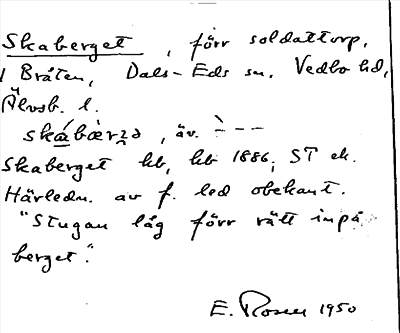 Skaberget, förr soldattorp,
/ Bråten, Dals-Eds sn. Vedbo hd,
Älvsb. l.
skábærʒə, äv. `---
Skaberget kb, kb 1886; ST ek.
Härledn. av f. led obekant.
"Stugan låg förr rätt inpå
berget."
E. Rosen 1950